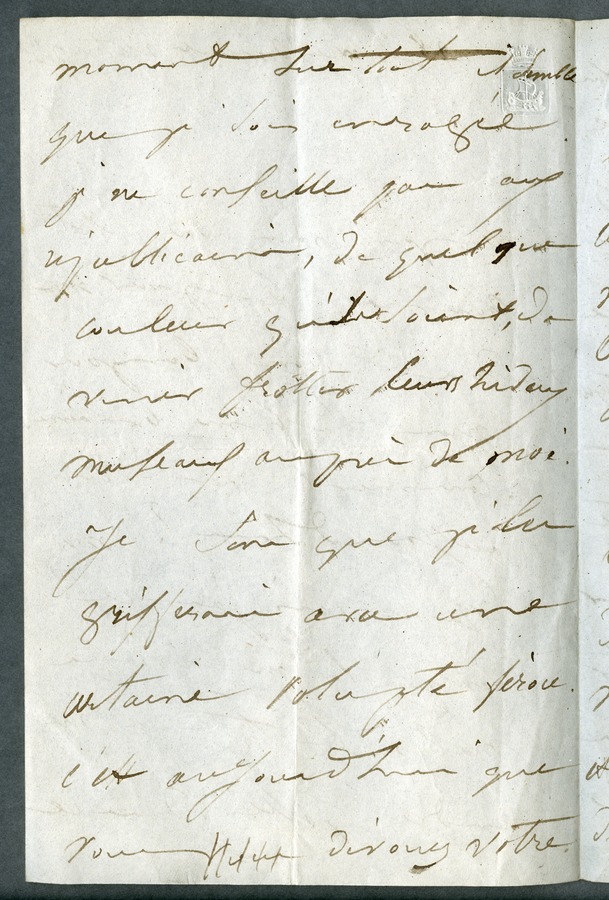 moment surtout il semble
que je sois enragée
je ne conseille pas aux
républicains, de quelque
couleur qu'ils soient, de
venir frotter leurs hideux
museaux auprès de moi.
Je sens que je les
grifferais avec une
certaine volupté féroce.
c'est aujourd'hui que
vous dévorez votre